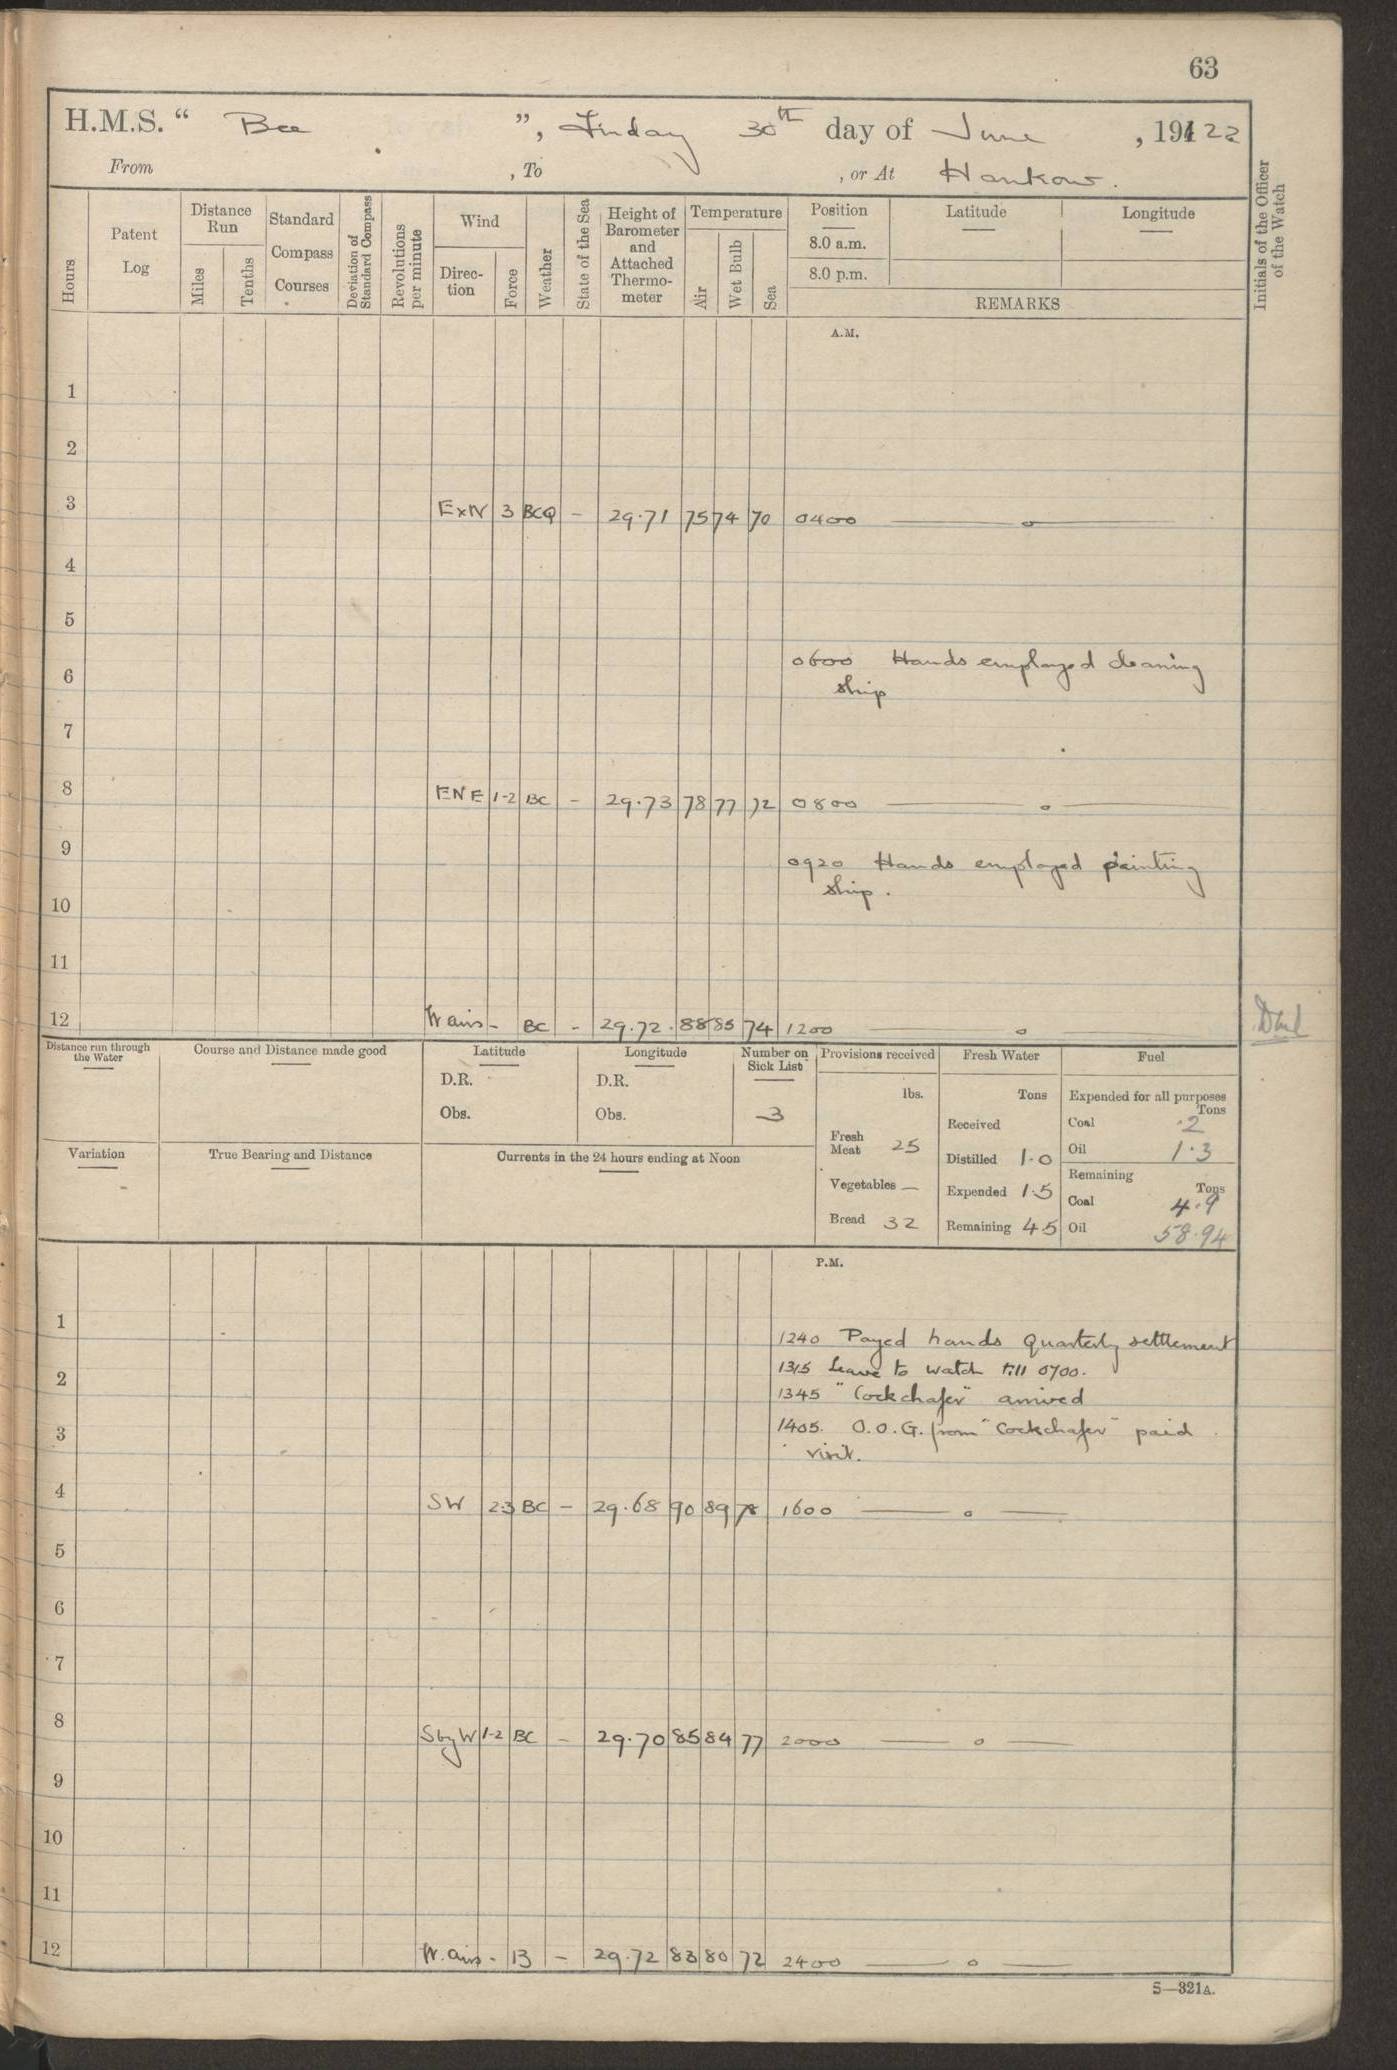 63
H.M.S. “ Bee ”, Friday 30th day of June , 191 22
From , To , or At Hankow.
Hours
Patent Log
Distance Run
Miles
Tenths
Standard Compass Courses
Deviation of Standard Compass
Revolutions per minute
Wind
Direction
Force
Weather
State of the Sea
Height of Barometer and Attached Thermometer
Temperature
Air
Wet Bulb
Sea
Position
8.0 a.m.
8.0 p.m.
Latitude
Longitude
REMARKS
Initials of the Officer of the Watch
A.M.
1
2
3
ExN 3 BCQ - 29.71 75 74 70 0400 —o—
4
5
0600 Hands employed cleaning
6
ship
7
8
ENE 1-2 BC - 29.73 78 77 72 0800 —o—
9
0920 Hands employed painting
ship.
10
11
12 W airs - BC - 29.72 88 85 74 1200 —o—
Distance run through the Water
Course and Distance made good
Latitude
D.R.
Obs.
Longitude
D.R.
Obs.
Number on Sick List
3
Provisions received
lbs.
Fresh Meat 25
Vegetables —
Bread 32
Fresh Water
Tons
Received
Distilled 1.0
Expended 1.5
Remaining 45
Fuel
Expended for all purposes
Tons
Coal .2
Oil 1.3
Remaining
Tons
Coal 4.9
Oil 58.94
Variation
-
True Bearing and Distance
Currents in the 24 hours ending at Noon
P.M.
1
1240 Payed hands Quarterly settlement
1315 Leave to watch till 0700.
2
1345 "Cockchafer" arrived
3
1405. O.O.G. from "Cockchafer" paid
visit.
4
SW 2.3 BC - 29.68 90 89 78 1600 —o—
5
6
7
8
SbyW 1-2 BC - 29.70 85 84 77 2000 —o—
9
10
11
12 W. airs - B - 29.72 83 80 72 2400 —o—
S—321A.